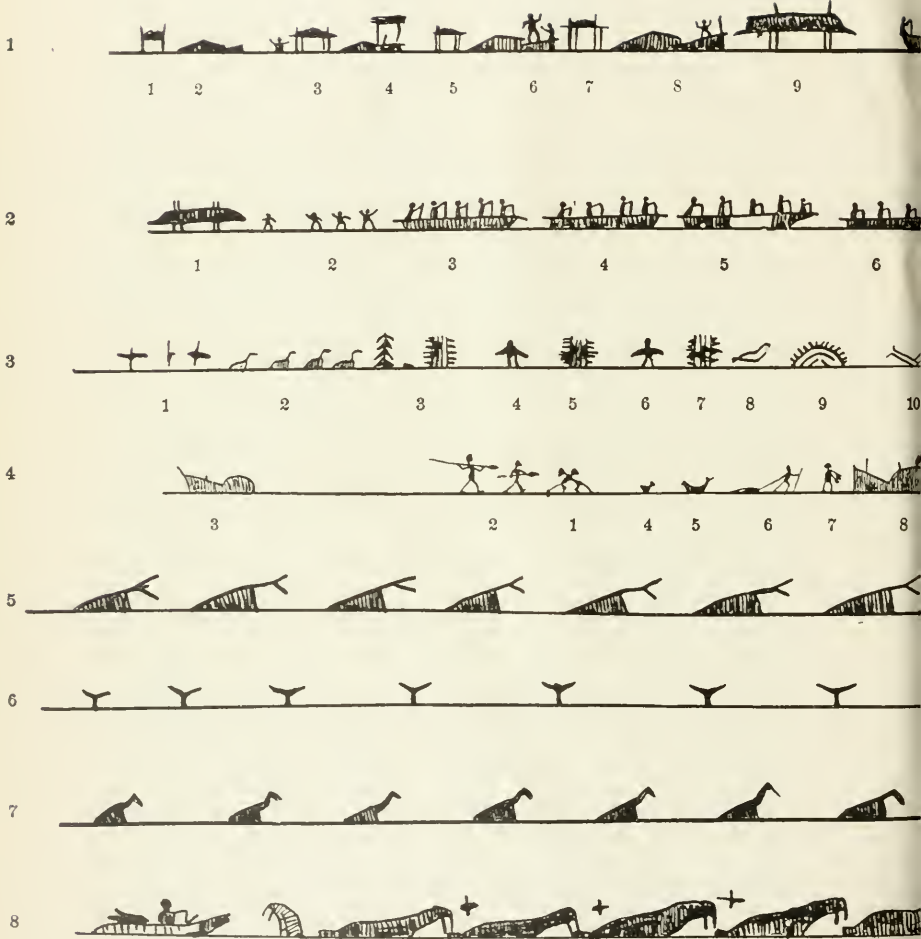 1
1 2 3 4 5 6 7 8 9
2
1 2 3 4 5 6
3
1 2 3 4 5 6 7 8 9 10
4
3 2 1 4 5 6 7 8
5
6
7
8